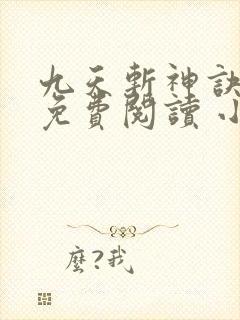 九天斬神訣
免費閱讀 小
麼?我